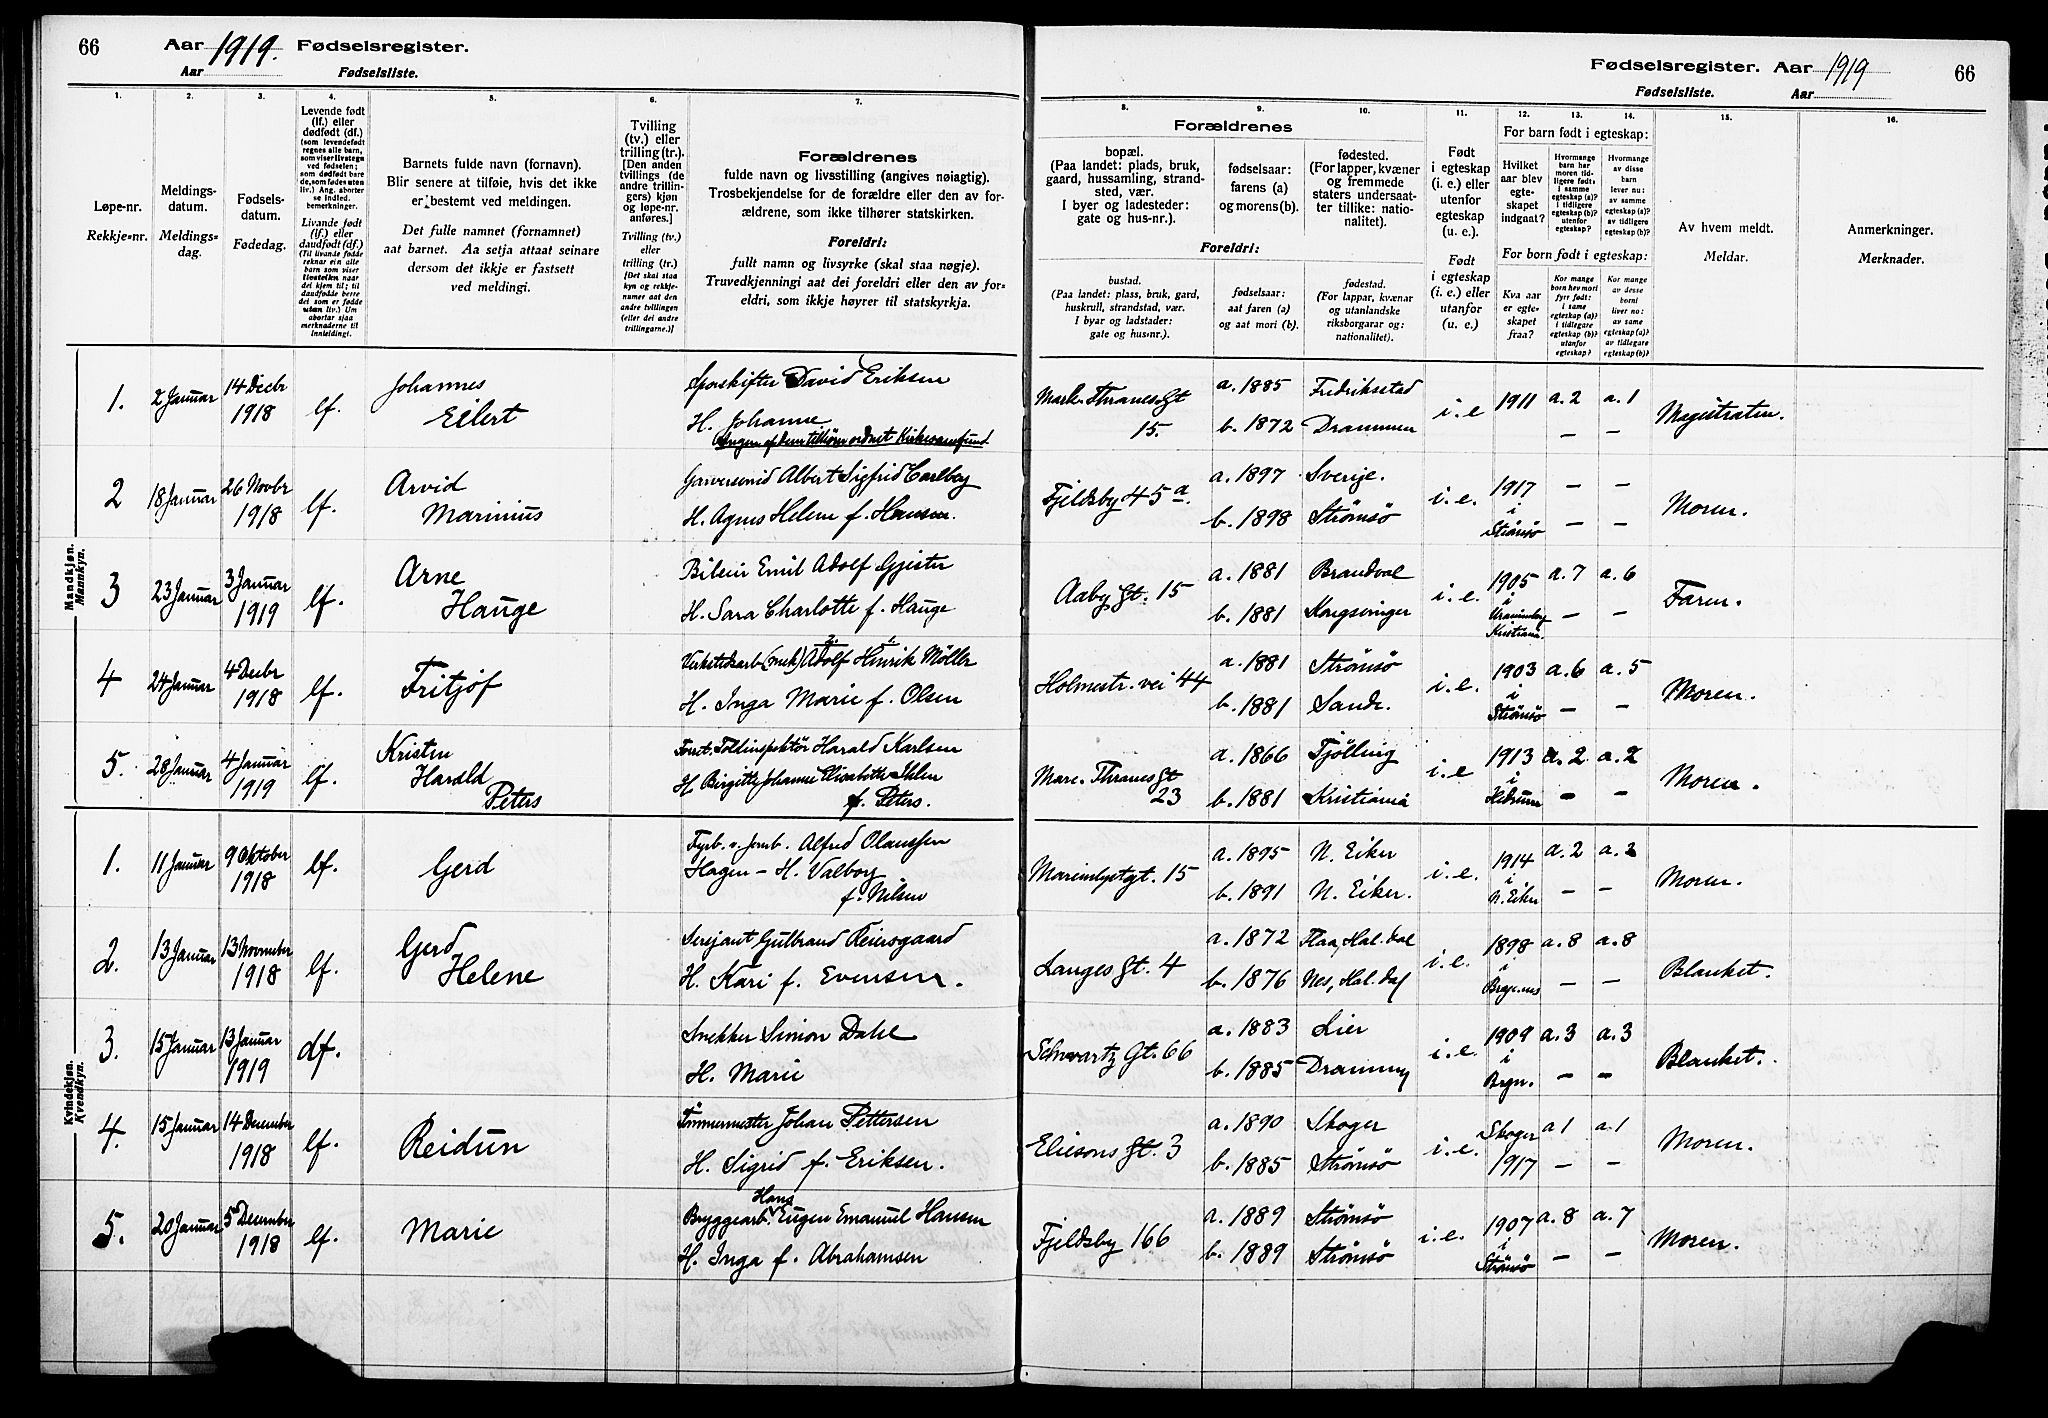 66 Aar 1919. Fødselsregister.
Aar Fødselsliste.
Fødselsregister. Aar 1919 66
Fødselsliste. Aar
1. 2. 3. 4. 5. 6. 7.
Løpe-nr.
Rekkje=nr.
Meldings-
datum.
Meldings=
dag.
Fødsels-
datum.
Fødedag.
Levende født
(lf.) eller
dødfødt (df.)
(som levendefødt
regnes alle barn,
som viser livstegn
ved fødselen;
som dødfødt bare
de, som fødes uten
liv.) Ang. aborter
se indled.
bemerkninger.
Livande født
(lf.) eller
daudfødt (df.)
(Til livande fødde
reknar ein alle
barn som viser
livsteikn naar
dei kjem til; til
daudfødde berre
dei som er fødde
utan liv.) Um
abortar sjaa
merknaderne til
innleiding).
Barnets fulde navn (fornavn).
Blir senere at tilføie, hvis det ikke
er bestemt ved meldingen.
Det fulle namnet (fornamnet)
aat barnet. Aa setja attaat seinare
dersom det ikkje er fastsett
ved meldingi.
Tvilling
(tv.) eller
trilling (tr.).
[Den anden
tvillings (de
andre trillin-
gers) kjøn
og løpe-nr.
anføres.]
Tvilling (tv.)
eller
trilling (tr.)
[Det skal staa
kyn og rekkje-
numer aat den
andre tvillingen
(eller dei andre
trillingarne.)]
Forældrenes
fulde navn og livsstilling (angives nøiagtig).
Trosbekjendelse for de forældre eller den av for-
ældrene, som ikke tilhører statskirken.
Foreldri:
fullt namn og livsyrke (skal staa nøgje).
Truvedkjenningi aat dei foreldri eller den av for=
eldri, som ikkje høyrer til statskyrkja.
8. 9. 10. 11. 12. 13. 14. 15. 16.
Forældrenes
bopæl.
(Paa landet: plads, bruk,
gaard, hussamling, strand-
sted, vær.
I byer og ladesteder:
gate og hus-nr.).
fødselsaar:
farens (a)
og morens (b).
fødested.
(For lapper, kvæner
og fremmede
staters undersaat-
ter tillike: natio-
nalitet).
Foreldri:
bustad.
(Paa landet: plass, bruk, gard,
huskrull, strandstad, vær.
I byar og ladstader:
gate og hus=nr.).
fødselsaar:
aat faren (a)
og aat mori (b).
fødestad.
(For lappar, kvænar
og utanlandske
riksborgarar og:
nationalitet).
Født
i egteskap
(i. e.) eller
utenfor
egteskap
(u. e.).
Født
i egteskap
(i. e.) eller
utanfor
(u. e.).
For barn født i egteskap:
Hvilket
aar blev
egte-
skapet
indgaat?
Hvormange
barn har
moren tid-
ligere født:
i samme
egteskap (a)?
i tidligere
egteskap (b)?
utenfor
egteskap?
Hvormange
av disse
barn
lever nu:
av samme
egteskap (a)?
av tidligere
egteskap (b)?
For born født i egteskap:
Kva aar
er egte-
skapet
fraa?
Kor mange
born hev mori
fyrr født:
i same
egteskap (a)?
i tidlegare
egteskap (b)?
utanfor
egteskap?
Kor mange
av desse
borni
liver no:
av same
egteskap (a)?
av tidlegare
egteskap (b)?
Av hvem meldt.
Meldar.
Anmerkninger.
Merknader.
Mandkjøn.
Mannkyn.
1. 2 Januar 14 Decbr 1918 lf. Johannes
Eilert
Sporskifter David Eriksen
H. Johanne
Ingen af dem tilhører ordnet Kirkesamfund
Mark. Thranes Gt
15.
a. 1885 Fredriksstad
b. 1872 Drammen
i. e 1911 a. 2 a. 1
— —
Magistraten.
2 18 Januar 26 Novbr 1918 lf. Arvid
Marinius
Garversvend Albert Sigfrid Carlberg
H. Agnes Helene f. Hansen.
Fjeldsby 45 a.
a. 1897 Sverige.
b. 1898 Strømsö
i. e. 1917 i Strömsö — —
— —
Moren.
3 23 Januar 3 Januar 1919 lf. Arne
Hauge
Bileier Emil Adolf Gjester
H. Sara Charlotte f. Hauge
Aaby Gt. 15
a. 1881 Brandval
b. 1881 Kongsvinger
i. e. 1905 i Uranienborg Kristiania. a. 7 a. 6
— —
Faren.
4 24 Januar 4 Decbr 1918 lf. Fritjof
Verkstedsarb. (mek) Adolf Henrik Möller
2. 1.
H. Inga Marie f. Olsen
Holmestr. vei 44
a. 1881 Strömsö
b. 1881 Sande.
i. e. 1903 i Strömsö a. 6 a. 5
— —
Moren.
5. 28 Januar 4 Januar 1919 lf. Kristen
Harald
Peters
Const. Toldinspektör Harald Karlsen
H. Birgitte Johanne Elisabeth Ihlen
f. Peters.
Marc. Thranes Gt
23
a. 1866 Tjölling
b. 1881 Kristiania
i. e 1913 i Hedrum a. 2 a. 2
— —
Moren.
Kvindekjøn.
Kvendkyn.
1. 11 Januar 9 Oktober 1918 lf. Gerd
Fyrb. v. Jernb. Alfred Olaussen
Hagen – H. Valborg
f. Nilsen
Marienlystgt. 15
a. 1895 N. Eiker
b. 1891 N. Eiker.
i. e. 1914 i N. Eiker a. 2 a. 2
— —
Moren.
2. 13 Januar 13 November 1918 lf. Gerd
Helene
Sersjant Gulbrand Reiersgaard
H. Kari f. Evensen.
Langes Gt. 4
a. 1872 Flaa, Hal. dal
b. 1876 Nes, Hal. dal
i. e. 1898 i Brag.nes a. 8 a. 8
— —
Blanket.
3. 15 Januar 13 Januar 1919 df.
Snekker Simon Dahl
H. Marie
Schwartz Gt. 66
a. 1883 Lier
b. 1885 Drammen
i. e. 1909 i Brgn. a. 3 a. 3
— —
Blanket.
4. 15 Januar 14 December 1918 lf. Reidun
Tömmermester Johan Pettersen
H. Sigrid f. Eriksen.
Eliesons Gt. 3
a. 1890 Skoger
b. 1885 Strömsö
i. e. Skoger 1917 a 1 a. 1
— —
Moren.
5. 20 Januar 5 December 1918 lf. Marie
Bryggearb. Hans Eugen Emanuel Hansen
H. Inga f. Abrahamsen
Fjeldsby 166
a. 1889 Strömsö
b. 1889 Strömsö
i. e. 1907 i Strömsö a. 8 a. 7
— —
Moren.